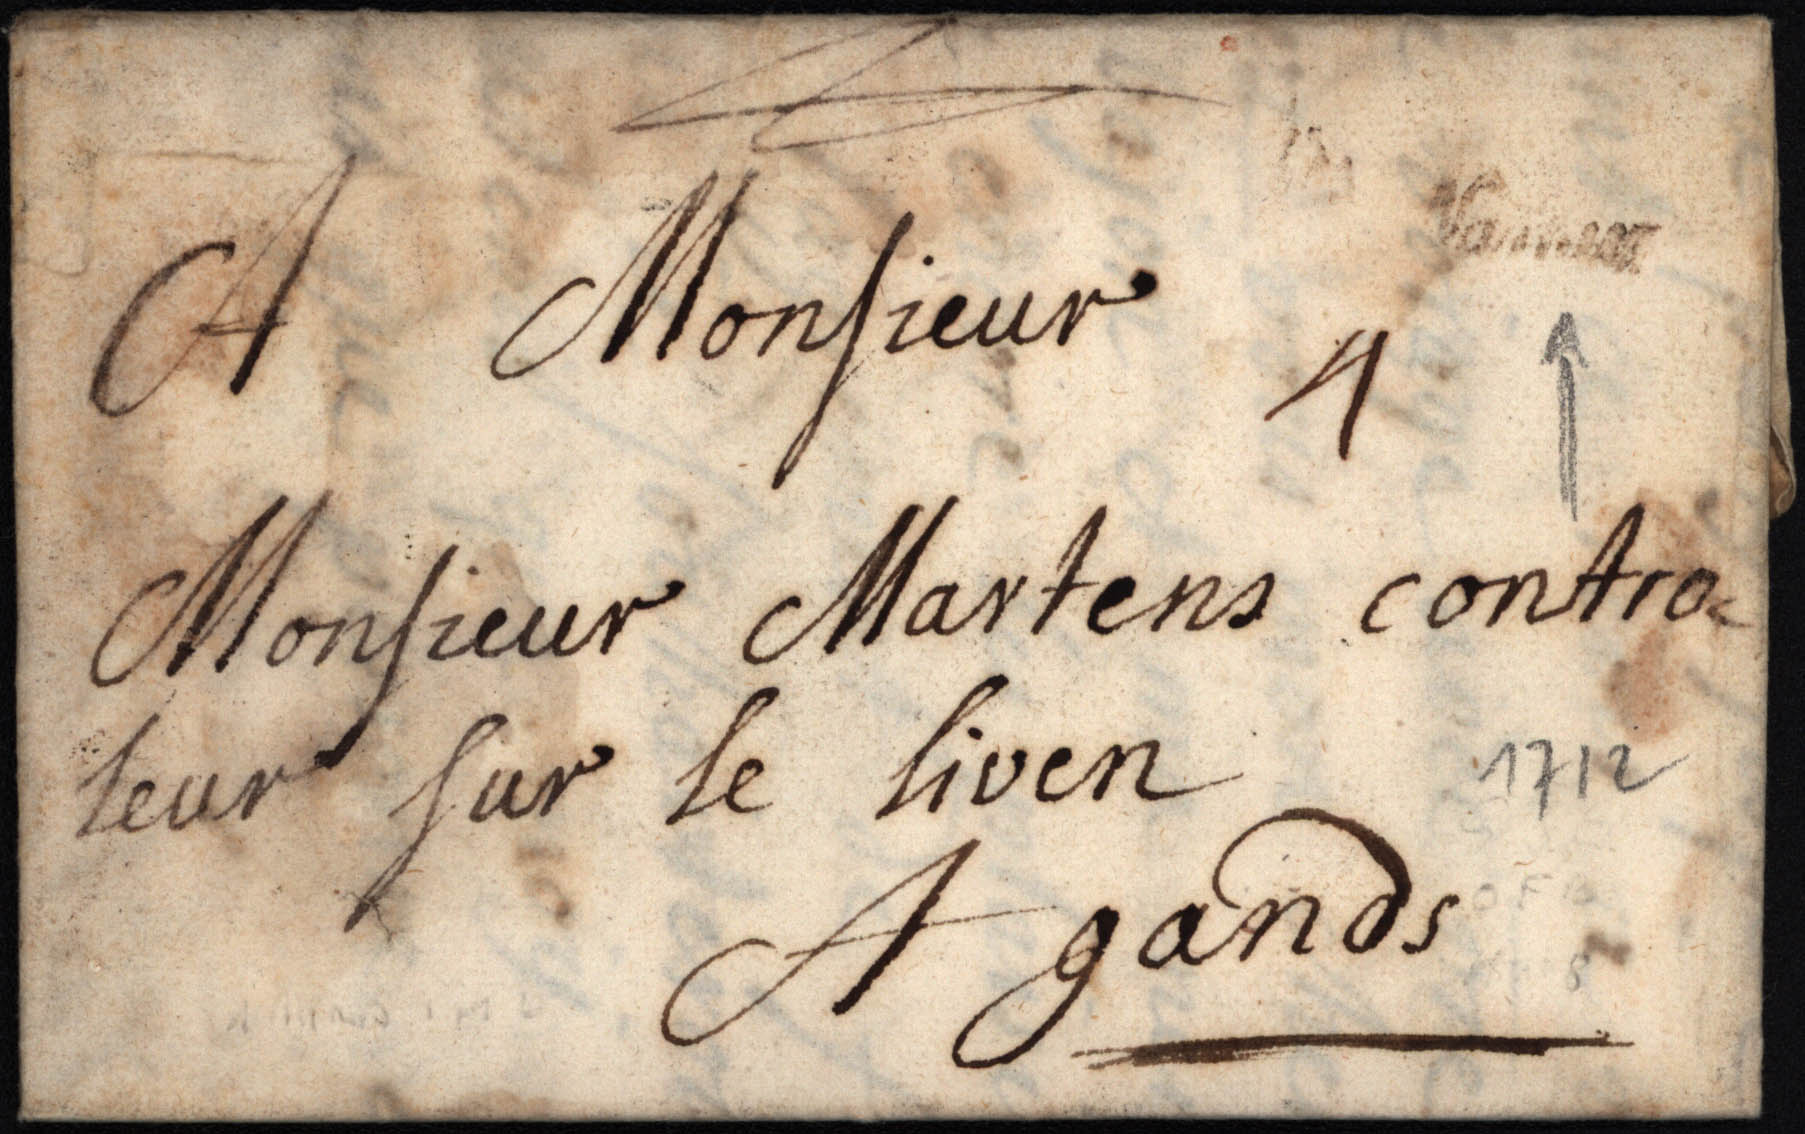 A Monsieur
4
Monsieur Martens contro=
leur sur le liven
1712
A gands